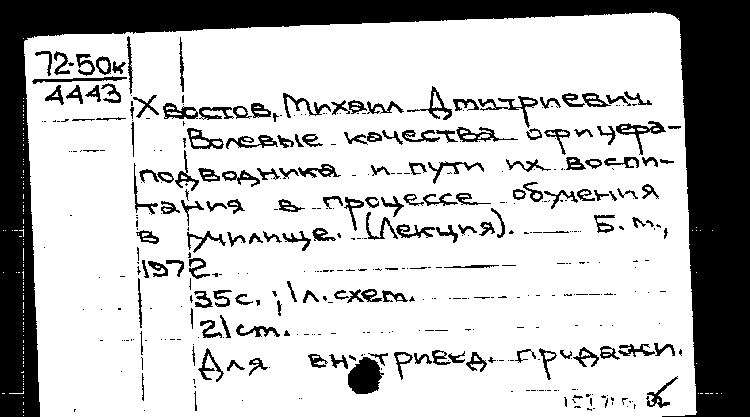 72-50к
4443
Хвостов, Михаил Дмитриевич.
Волевые качества офицера-
подводника и пути их воспи-
тания в процессе обучения
в училище. (Лекция). Б.м.,
1972.
35с.; 1л.схем.
21см.
Для внутривед. продажи.